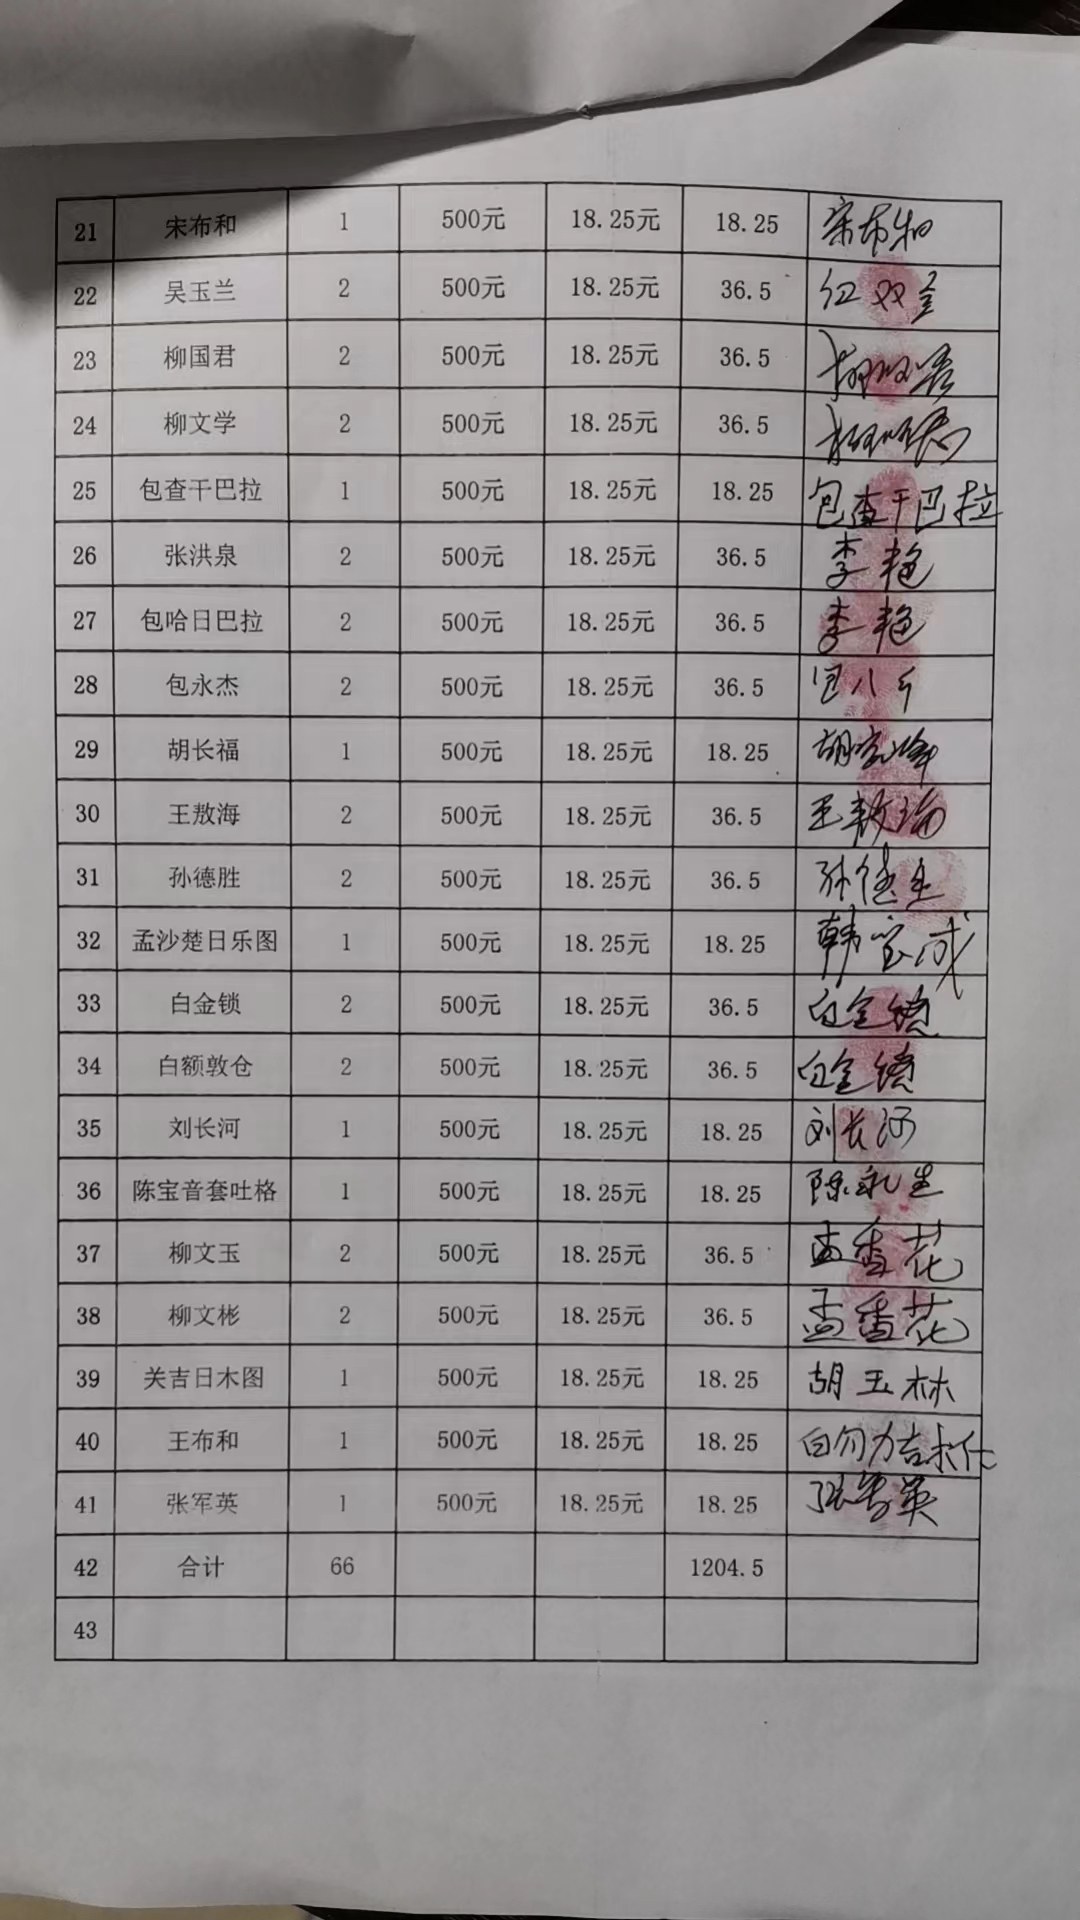 21 宋布和 1 500元 18.25元 18.25 宋布和
22 吴玉兰 2 500元 18.25元 36.5 红双全
23 柳国君 2 500元 18.25元 36.5
24 柳文学 2 500元 18.25元 36.5
25 包查干巴拉 1 500元 18.25元 18.25 包查干巴拉
26 张洪泉 2 500元 18.25元 36.5 李艳
27 包哈日巴拉 2 500元 18.25元 36.5 李艳
28 包永杰 2 500元 18.25元 36.5 包八斤
29 胡长福 1 500元 18.25元 18.25
30 王敖海 2 500元 18.25元 36.5 王敖海
31 孙德胜 2 500元 18.25元 36.5
32 孟沙楚日乐图 1 500元 18.25元 18.25 韩宝成
33 白金锁 2 500元 18.25元 36.5 白金锁
34 白额敦仓 2 500元 18.25元 36.5 白金锁
35 刘长河 1 500元 18.25元 18.25 刘长河
36 陈宝音套吐格 1 500元 18.25元 18.25 陈永生
37 柳文玉 2 500元 18.25元 36.5 孟香花
38 柳文彬 2 500元 18.25元 36.5 孟香花
39 关吉日木图 1 500元 18.25元 18.25 胡玉林
40 王布和 1 500元 18.25元 18.25
41 张军英 1 500元 18.25元 18.25 张军英
42 合计 66 1204.5
43